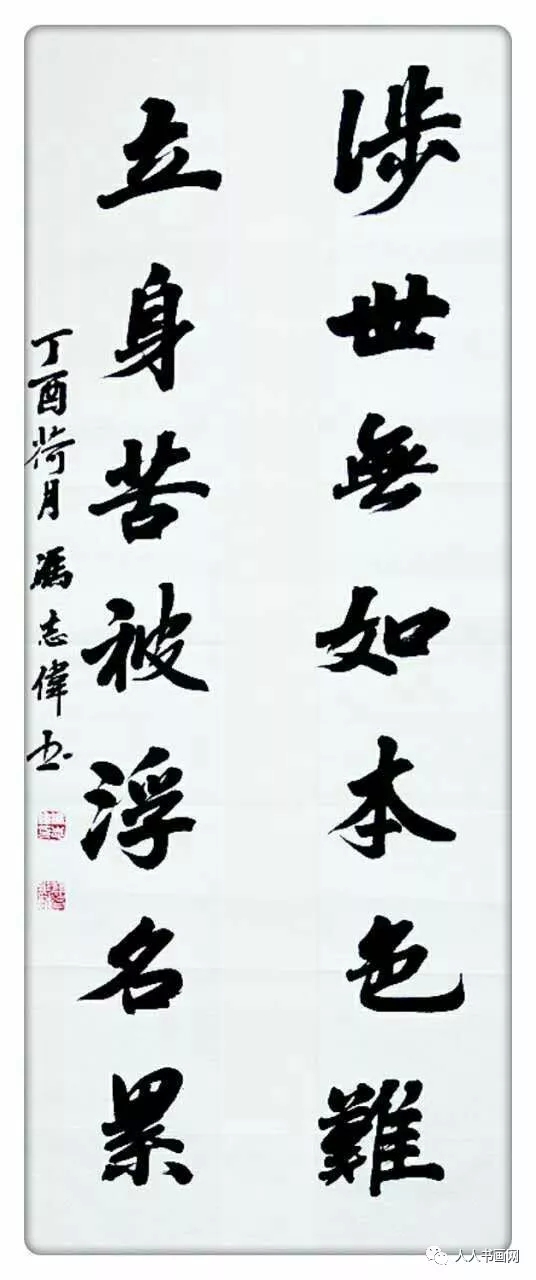 涉世無如本色難
立身苦被浮名累
丁酉荷月馮志偉书
人人书画网